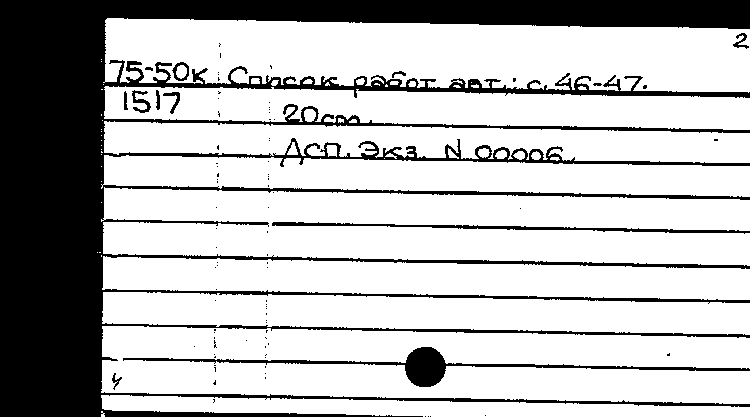 2
75-50к Список работ авт.: с. 46-47.
1517 20см.
ДСП. Экз. N 00006.
ч